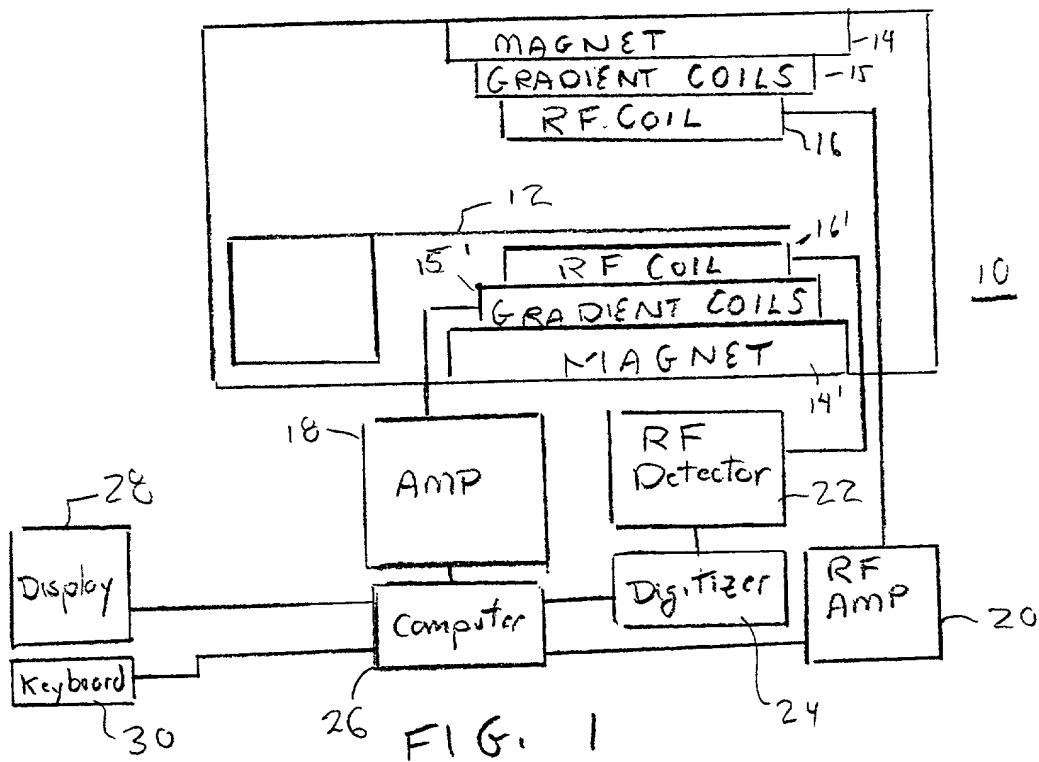 MAGNET
14
GRADIENT COILS
15
RF. COIL
16
12
16'
15'
RF COIL
10
GRADIENT COILS
MAGNET
14'
18
AMP
RF
Detector
22
28
Display
Computer
Digitizer
RF
AMP
20
Keyboard
30
26
24
FIG. 1